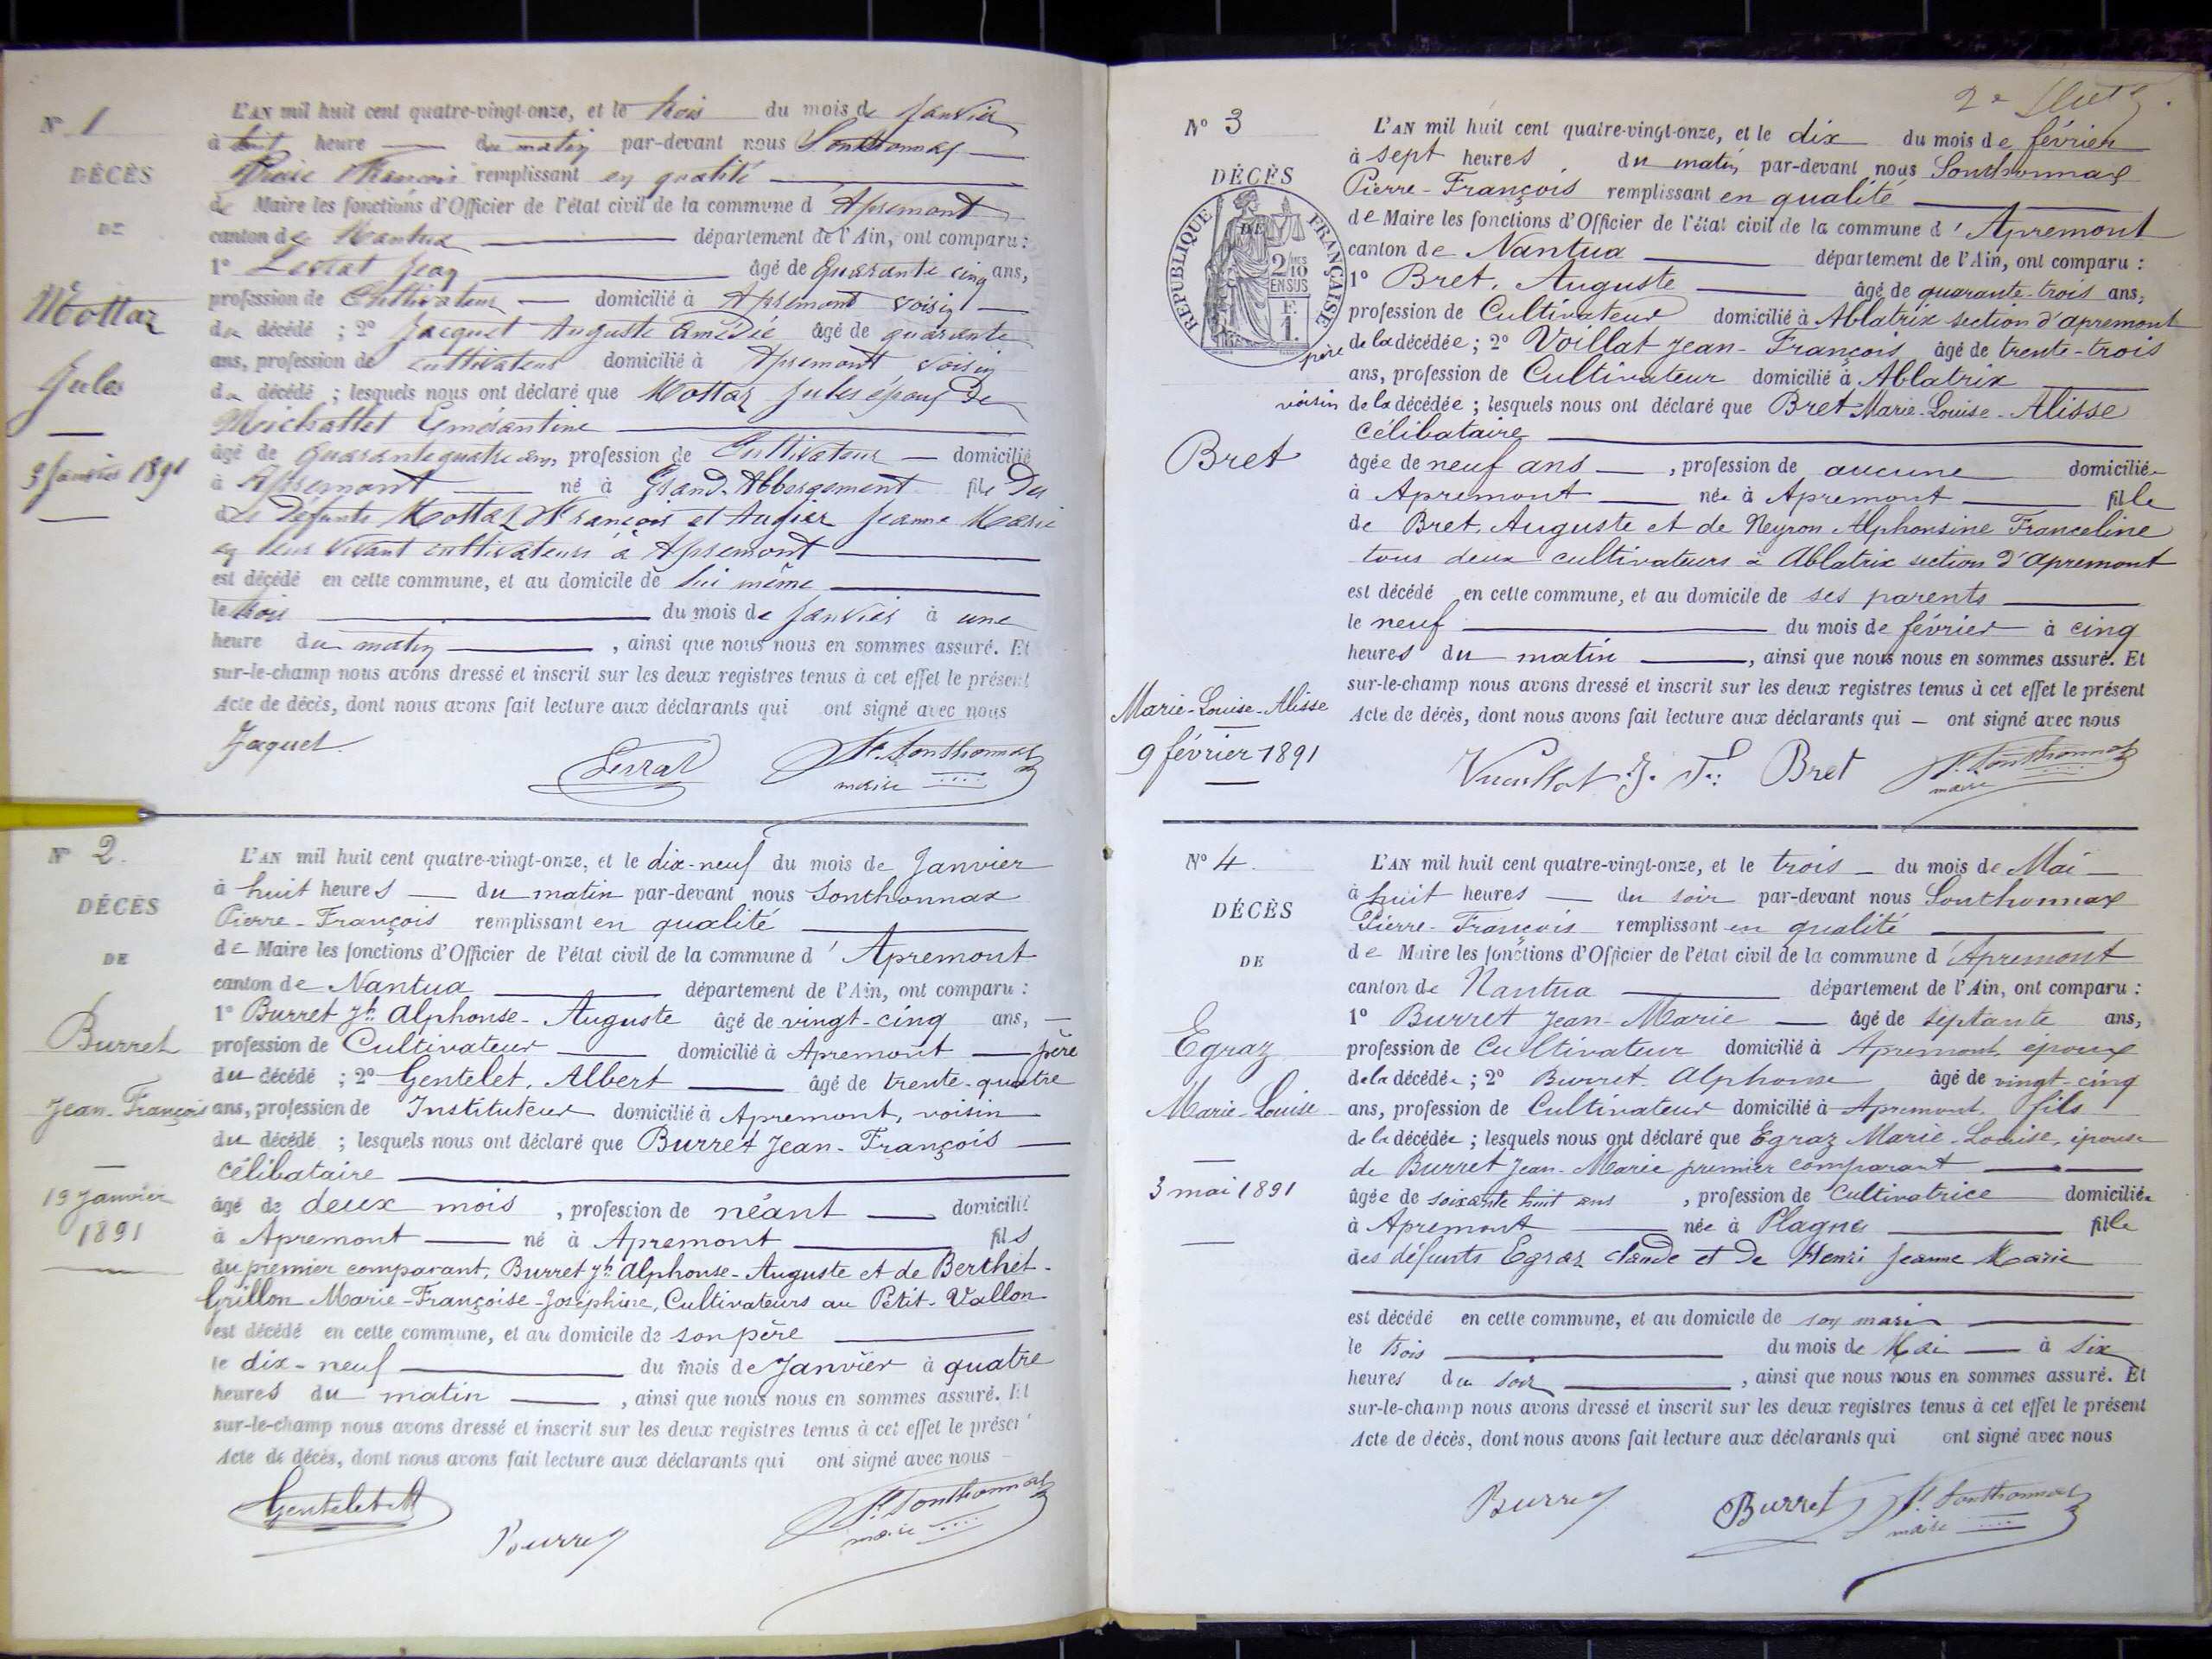 N° 1
DÉCÈS
DE
Mottaz
Jules
3 Janvier 1891
L'AN mil huit cent quatre-vingt-onze, et le trois du mois de Janvier
à huit heure du matin par-devant nous Sonthonnax
Pierre François remplissant en qualité
de Maire les fonctions d'Officier de l'état civil de la commune d'Apremont
canton de Nantua département de l'Ain, ont comparu :
1° Levrat Jean âgé de Quarante cinq ans,
profession de Cultivateur domicilié à Apremont voisin
du décédé ; 2° Jacquet Auguste Amédée âgé de quarante
ans, profession de cultivateur domicilié à Apremont, voisin
du décédé ; lesquels nous ont déclaré que Mottaz Jules époux de
Meichattet Emérantine
âgé de Quarante quatre ans, profession de Cultivateur domicilié
à Apremont né à Grand-Abbergement fils de
des défunts Mottaz François et Augier Jeanne Marie
en leur vivant cultivateurs à Apremont
est décédé en cette commune, et au domicile de lui même
le trois du mois de Janvier à une
heure du matin , ainsi que nous nous en sommes assuré. Et
sur-le-champ nous avons dressé et inscrit sur les deux registres tenus à cet effet le présent
Acte de décès, dont nous avons fait lecture aux déclarants qui ont signé avec nous
Jaquet Levrat P. Sonthonnax
maire
N° 2.
DÉCÈS
DE
Burret
Jean-François
19 Janvier
1891
L'AN mil huit cent quatre-vingt-onze, et le dix-neuf du mois de Janvier
à huit heures du matin par-devant nous Sonthonnax
Pierre-François remplissant en qualité
de Maire les fonctions d'Officier de l'état civil de la commune d'Apremont
canton de Nantua département de l'Ain, ont comparu :
1° Burret Jh Alphonse-Auguste âgé de vingt-cinq ans,
profession de Cultivateur domicilié à Apremont père
du décédé ; 2° Gentelet, Albert âgé de trente-quatre
ans, profession de Instituteur domicilié à Apremont, voisin
du décédé ; lesquels nous ont déclaré que Burret Jean-François
célibataire
âgé de deux mois , profession de néant domicilié
à Apremont né à Apremont fils
du premier comparant, Burret Jh Alphonse-Auguste et de Berthet-
Grillon Marie-Françoise-Joséphine, Cultivateurs au Petit-Vallon
est décédé en cette commune, et au domicile de son père
le dix-neuf du mois de Janvier à quatre
heures du matin , ainsi que nous nous en sommes assuré. Et
sur-le-champ nous avons dressé et inscrit sur les deux registres tenus à cet effet le présent
Acte de décès, dont nous avons fait lecture aux déclarants qui ont signé avec nous
Gentelet A Burret P. Sonthonnax
maire
N° 3
DÉCÈS
DE
RÉPUBLIQUE FRANÇAISE
2/10 EN SUS
F. 1.
Bret
Marie-Louise-Alisse
9 février 1891
L'AN mil huit cent quatre-vingt-onze, et le dix du mois de février
à sept heures du matin par-devant nous Sonthonnax
Pierre-François remplissant en qualité
de Maire les fonctions d'Officier de l'état civil de la commune d'Apremont
canton de Nantua département de l'Ain, ont comparu :
1° Bret, Auguste âgé de quarante-trois ans,
profession de Cultivateur domicilié à Ablatrix section d'apremont
père de la décédée ; 2° Voillat Jean-François âgé de trente-trois
ans, profession de Cultivateur domicilié à Ablatrix
voisin de la décédée ; lesquels nous ont déclaré que Bret Marie-Louise-Alisse
célibataire
âgée de neuf ans , profession de aucune domiciliée
à Apremont née à Apremont fille
de Bret, Auguste et de Neyron Alphonsine Franceline
tous deux cultivateurs à Ablatrix section d'apremont
est décédé en cette commune, et au domicile de ses parents
le neuf du mois de février à cinq
heures du matin , ainsi que nous nous en sommes assuré. Et
sur-le-champ nous avons dressé et inscrit sur les deux registres tenus à cet effet le présent
Acte de décès, dont nous avons fait lecture aux déclarants qui ont signé avec nous
Vuaillat J. F. Bret P. Sonthonnax
maire
N° 4.
DÉCÈS
DE
Egraz
Marie-Louise
3 mai 1891
L'AN mil huit cent quatre-vingt-onze, et le trois du mois de Mai
à huit heures du soir par-devant nous Sonthonnax
Pierre-François remplissant en qualité
de Maire les fonctions d'Officier de l'état civil de la commune d'Apremont
canton de Nantua département de l'Ain, ont comparu :
1° Burret Jean-Marie âgé de septante ans,
profession de Cultivateur domicilié à Apremont, epoux
de la décédée ; 2° Burret Alphonse âgé de vingt-cinq
ans, profession de Cultivateur domicilié à Apremont, fils
de la décédée ; lesquels nous ont déclaré que Egraz Marie-Louise, épouse
de Burret Jean-Marie premier comparant
âgée de soixante huit ans , profession de Cultivatrice domiciliée
à Apremont née à Plagnes fille
des défunts Egraz Claude et de Henri Jeanne Marie
est décédé en cette commune, et au domicile de son mari
le trois du mois de Mai à six
heures du soir , ainsi que nous nous en sommes assuré. Et
sur-le-champ nous avons dressé et inscrit sur les deux registres tenus à cet effet le présent
Acte de décès, dont nous avons fait lecture aux déclarants qui ont signé avec nous
Burret Burret P. Sonthonnax
maire